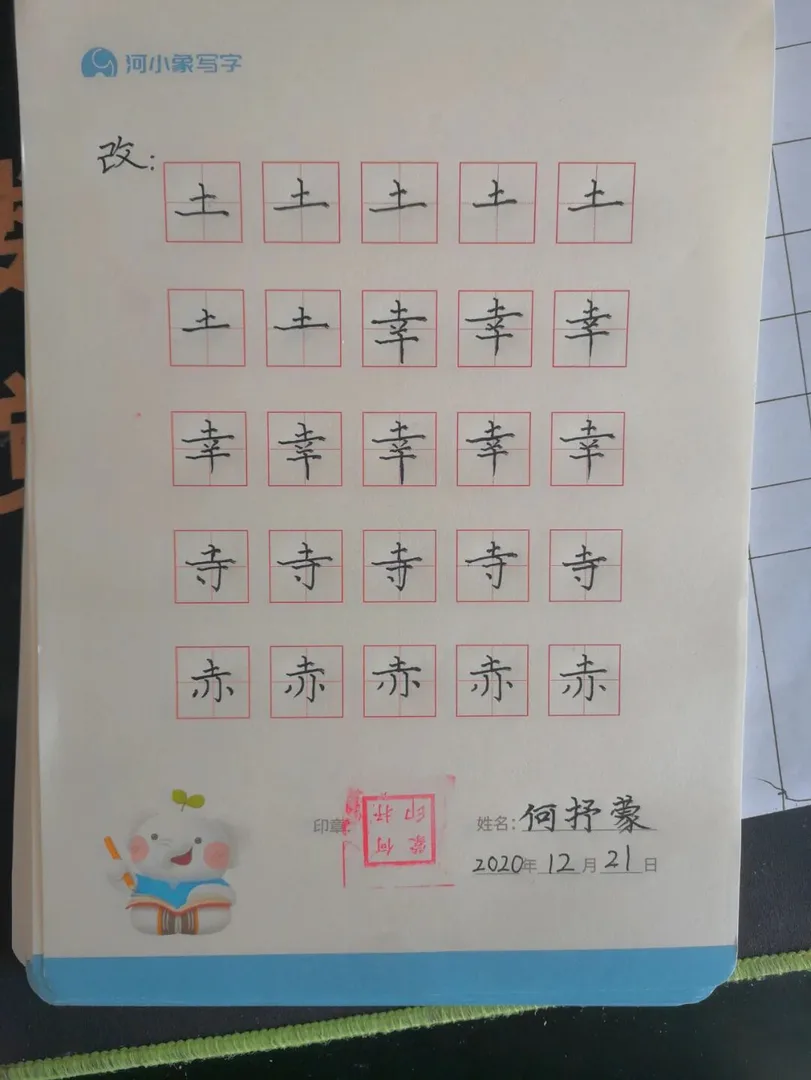 河小象写字
改:
土 土 土 土 土
土 土 幸 幸 幸
幸 幸 幸 幸 幸
寺 寺 寺 寺 寺
赤 赤 赤 赤 赤
印章
何抒蒙印
姓名:何抒蒙
2020年12月21日